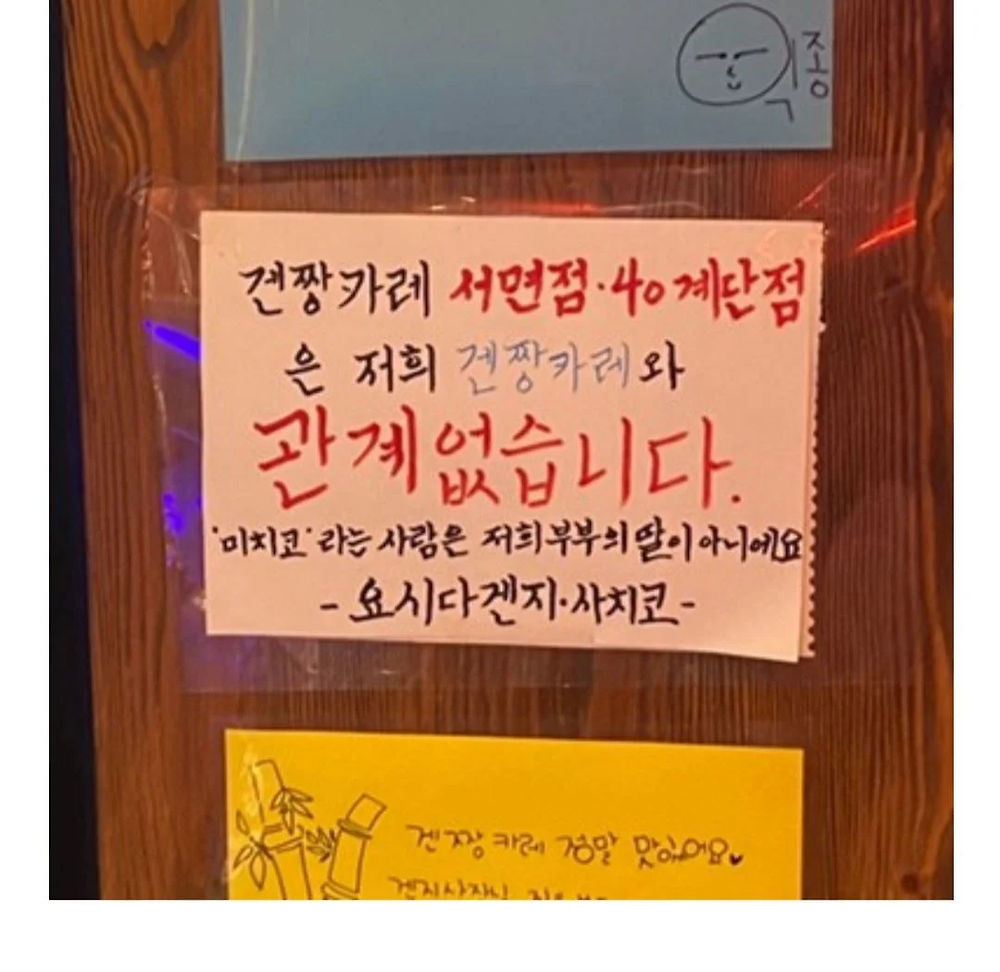 종
겐짱카레 서면점·40계단점
은 저희 겐짱카레와
관계없습니다.
'미치코'라는 사람은 저희부부의 딸이 아니에요
- 요시다겐지·사치코 -
겐짱카레 정말 맛있어요